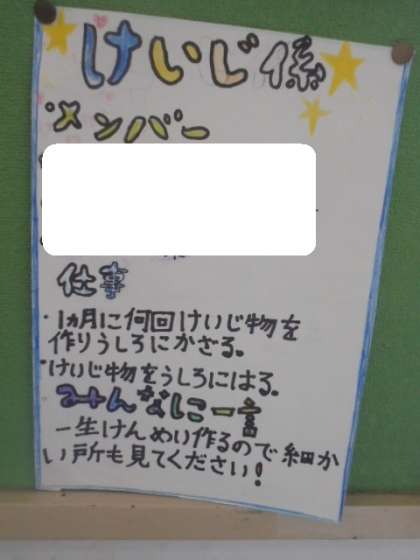 けいじ係
メンバー
仕事
・1ヵ月に何回けいじ物を
作りうしろにかざる。
・けいじ物をうしろにはる。
みんなに一言
一生けんめい作るので細か
い所も見てください!